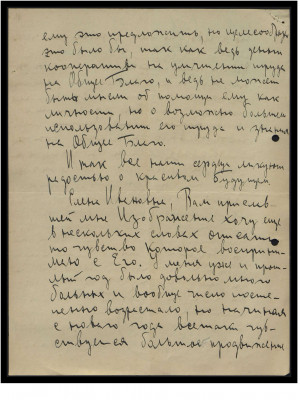 ему это предложить, но целесообразно
это было бы, так как ведь деньги
кооператива на улучшение труда
на Общее Благо, и ведь не может
быть мысли об помощи ему как
личности, но о возможно большем
использовании его труда и знания
на Общее Благо.
И как все наши сердца ликуют
радостью о красивом Будущем
Елена Ивановна, Вам приславшей
мне Изображение хочу еще
в нескольких словах описать
то чувство которое воспринимаю
с Его. У меня уже и прошлый
год было довольно много
больных и вообще число постепенно
возрастало, но начиная
с нового года всетаки чувствуется
большое продвижение